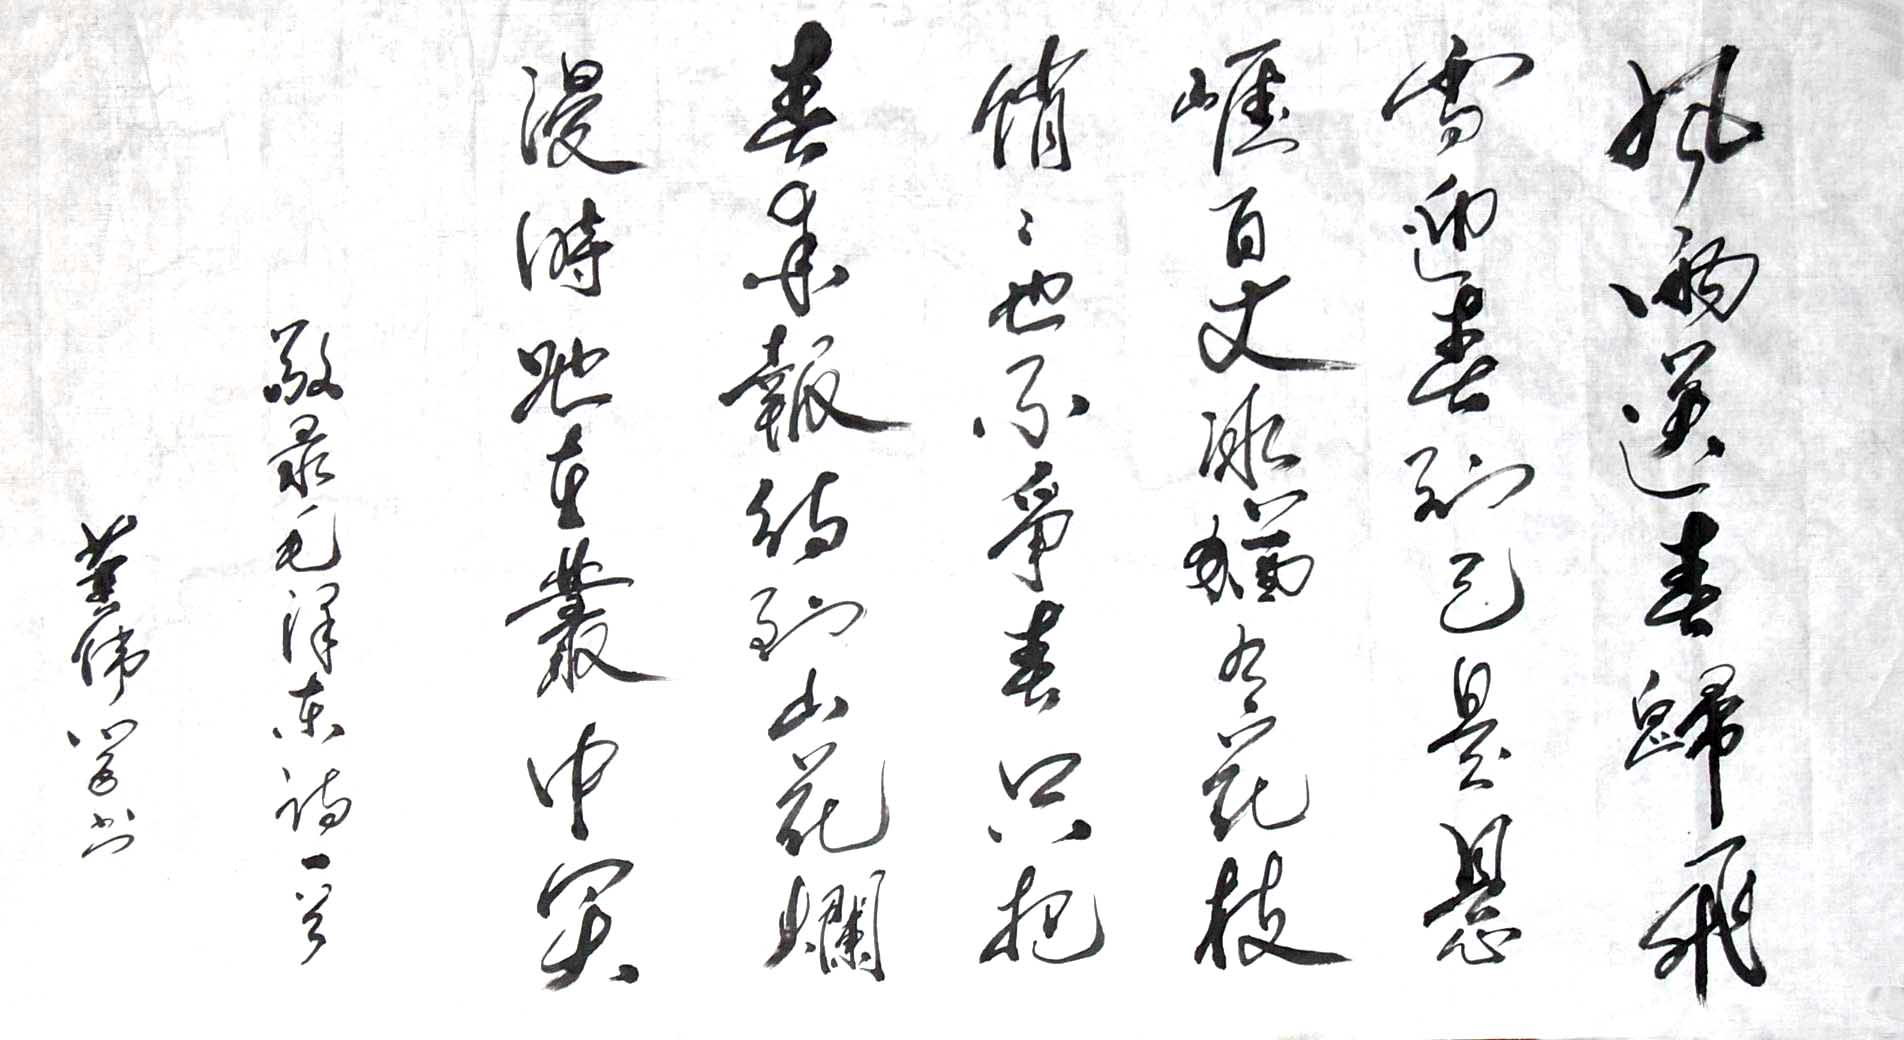 風雨送春歸飛
雪迎春到已是懸
崖百丈冰猶有花枝
俏〻也不爭春只把
春來報待到山花爛
漫時她在叢中笑
敬录毛澤东詩一首
偉学书